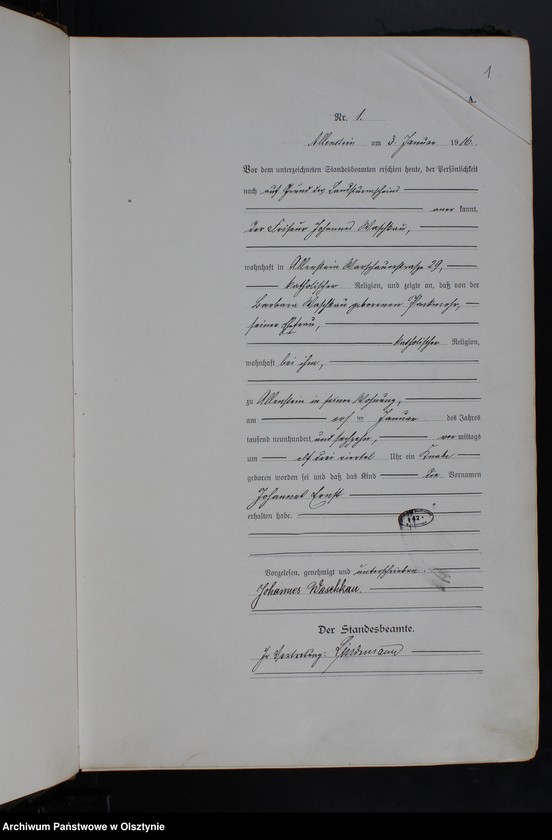 1
A.
Nr. 1.
Allenstein am 3. Januar 1916.
Vor dem unterzeichneten Standesbeamten erschien heute, der Persönlichkeit
nach auf Grund des Landsturmscheins
anerkannt,
der Friseur Johannes Waschkau,
wohnhaft in Allenstein Warschauerstraße 29,
katholischer Religion, und zeigte an, daß von der
Barbara Waschkau geborenen
seiner Ehefrau,
katholischer Religion,
wohnhaft bei ihm,
zu Allenstein in seiner Wohnung,
am Januar des Jahres
tausend neunhundert und sechzehn, vormittags
um elf drei viertel Uhr ein Knabe
geboren worden sei und daß das Kind die Vornamen
Johannes Ernst
erhalten habe.
Vorgelesen, genehmigt und unterschrieben.
Johannes Waschkau.
Der Standesbeamte.
In Vertretung:
Archiwum Państwowe w Olsztynie